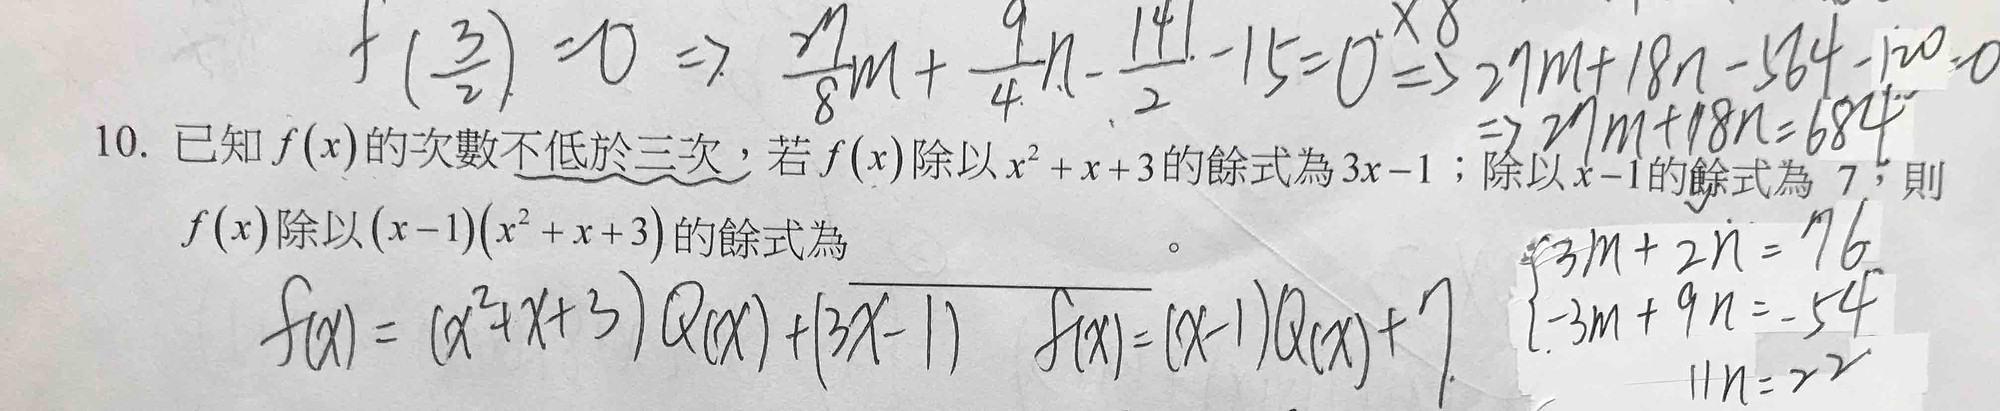 f(3/2)=0 => 27/8m+9/4n-141/2-15=0 ×8 => 27m+18n-564-120=0
=> 27m+18n=684
10. 已知 f(x) 的次數不低於三次，若 f(x) 除以 x²+x+3 的餘式為 3x-1；除以 x-1 的餘式為 7；則
f(x) 除以 (x-1)(x²+x+3) 的餘式為 。
3m+2n=76
f(x)=(x²+x+3)Q(x)+(3x-1) f(x)=(x-1)Q(x)+7
-3m+9n=-54
11n=22